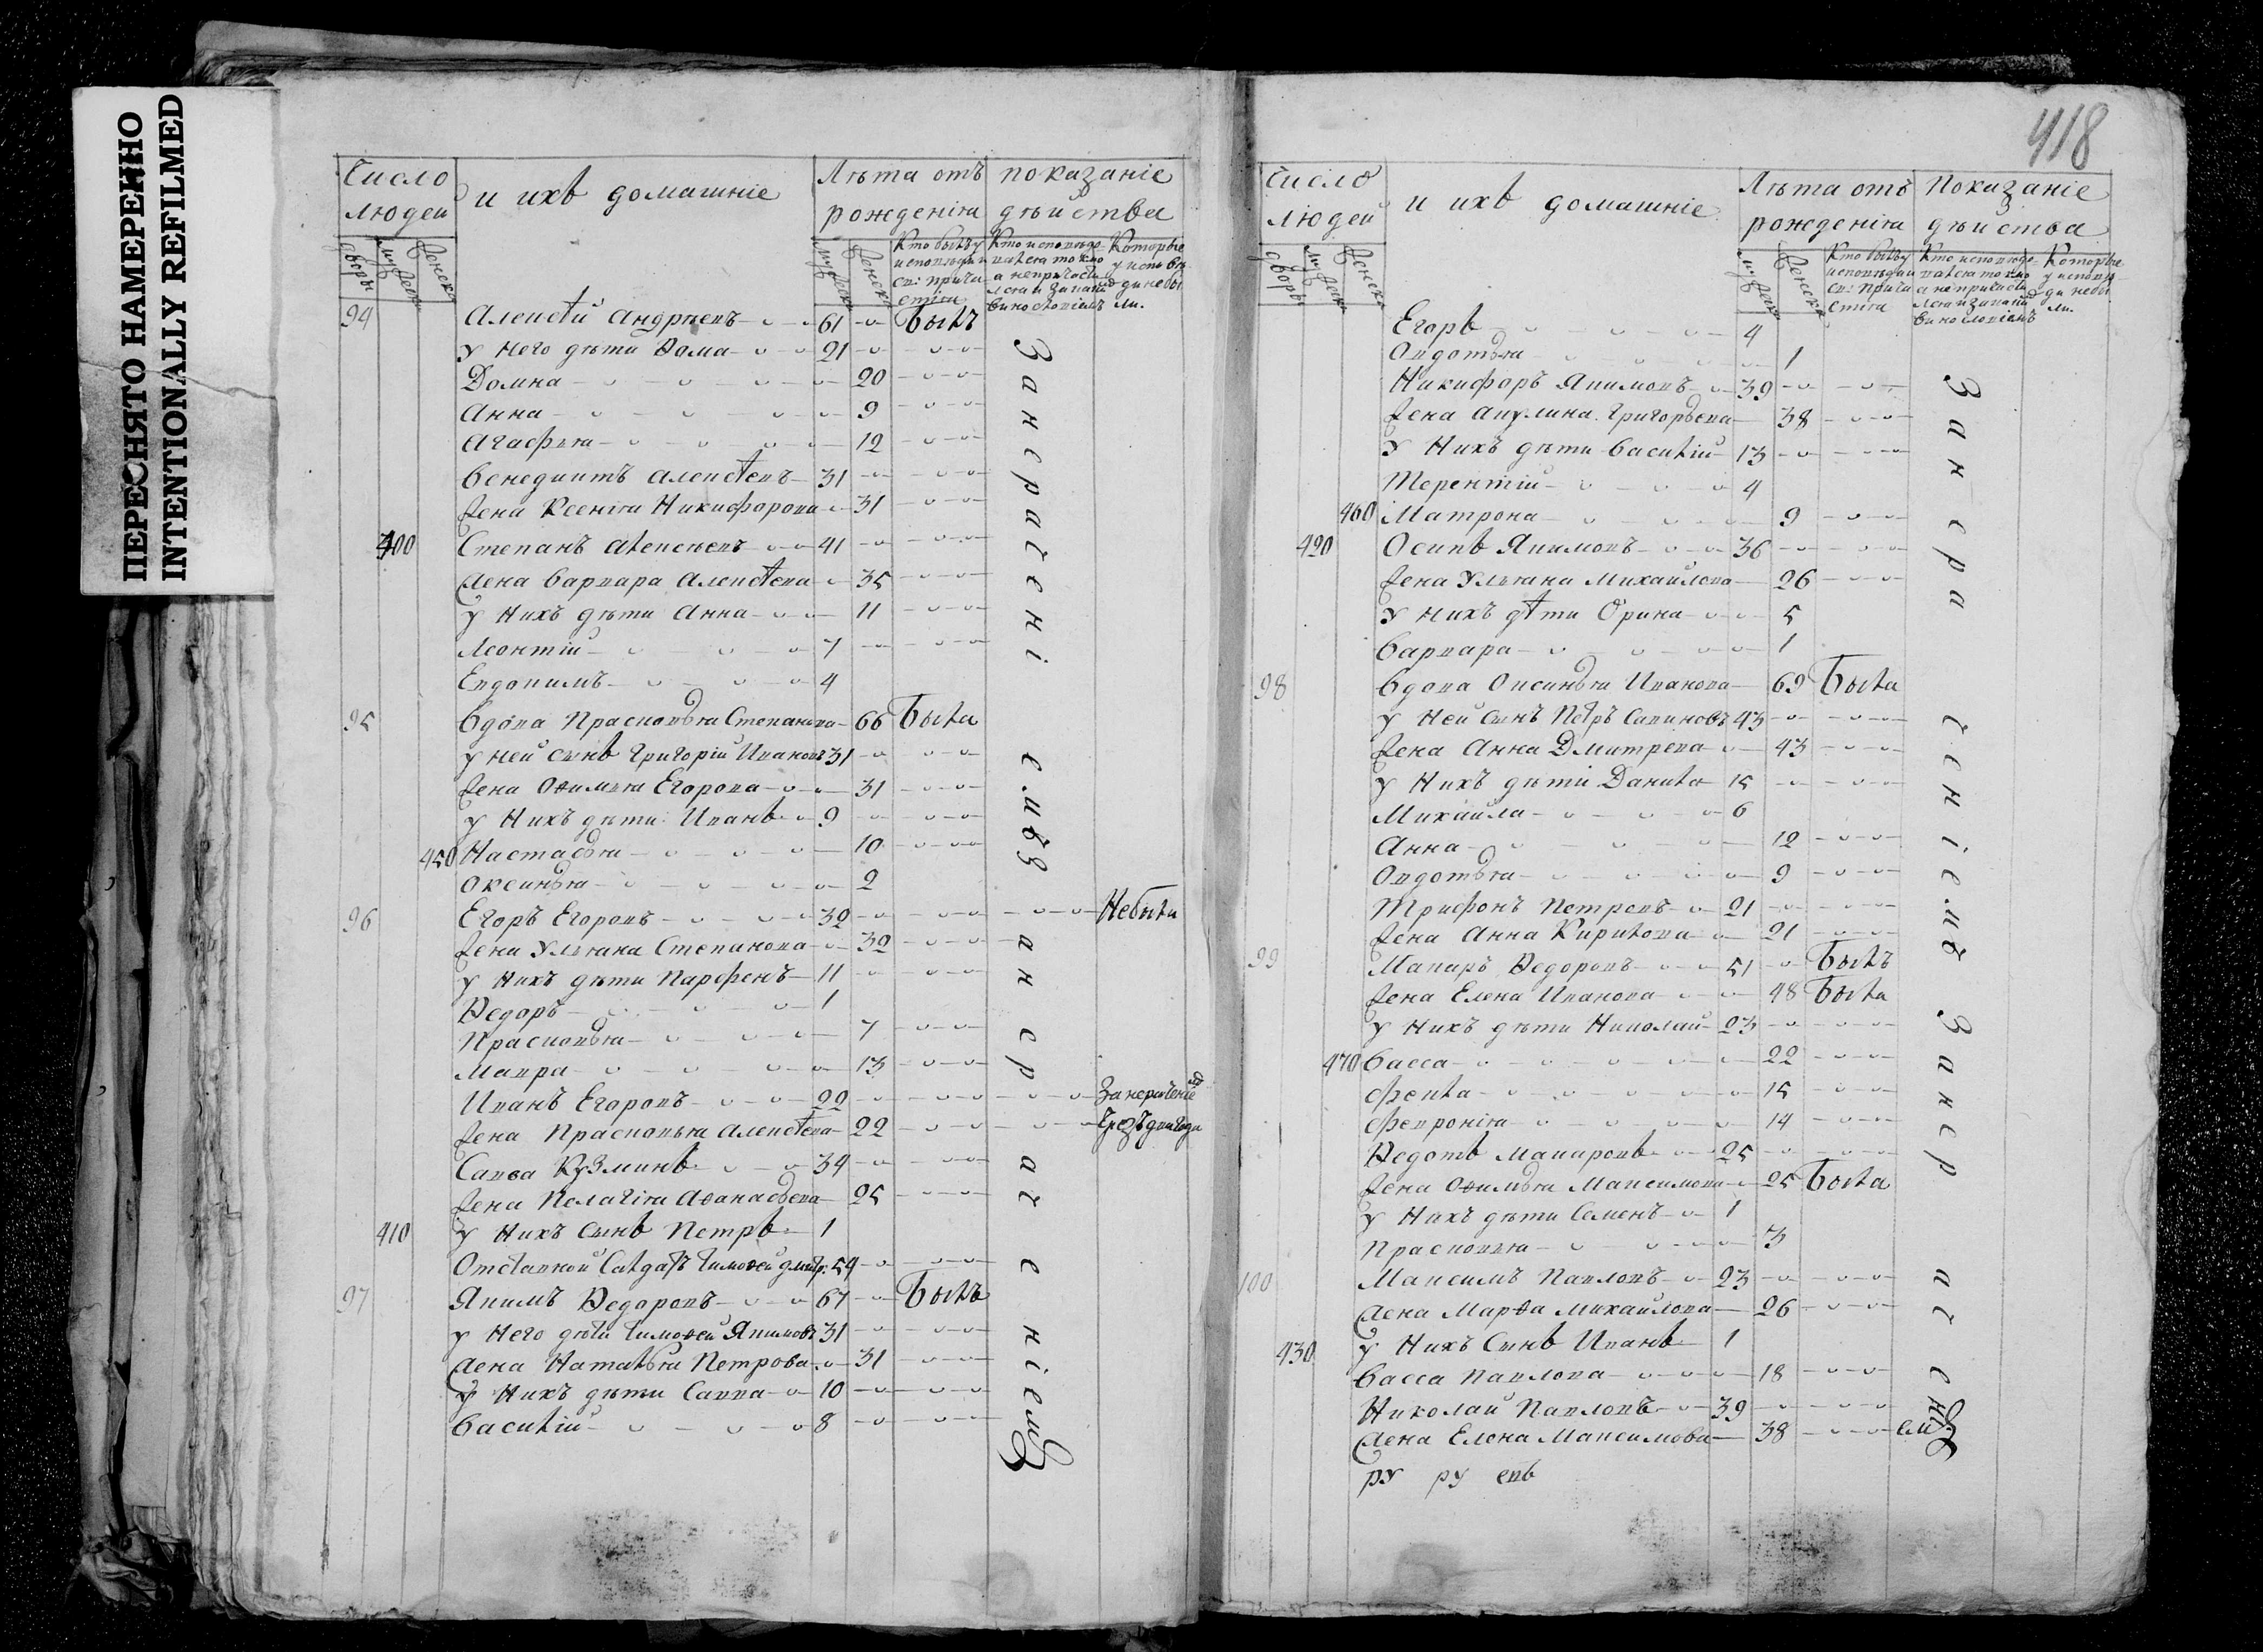 ПЕРЕСНЯТО НАМЕРЕННО
INTENTIONALLY REFILMED
Число людей и ихъ домашніе Лѣта отъ рожденія показаніе дѣйства
дворы муж: женск: муж: женск: Кто былъ у исповѣди и св: прича стія Кто исповѣдо вался токмо а не причасти лся и за каким винословіемъ Которые у исповѣ ди не бы ли.
94 Алексѣй Андрѣевъ 61 Былъ
у Него дѣти Ѳома 21
Домна 20
Анна 9
Агафья 12
Венедиктъ Алексѣевъ 31
Жена Ксенія Никифорова 31
400 Степанъ Алексѣевъ 41
Жена Варвара Алексѣева 35
у Нихъ дѣти Анна 11
Леонтій 7
Евдокимъ 4
95 Вдова Прасковья Степанова 66 Была
у ней сынъ Григорій Ивановъ 31
Жена Офимья Егорова 31
у Нихъ дѣти Иванъ 9
450 Настасья 10
Оксинья 2
96 Егоръ Егоровъ 32 Небыли
Жена Ульяна Степанова 32
у Нихъ дѣти Парфенъ 11
Ѳедоръ 1
Прасковья 7
Мавра 13
Иванъ Егоровъ 22
Жена Прасковья Алексѣева 22
Савва Кузминъ 34
Жена Пелагія Аѳанасьева 25
410 у Нихъ Сынъ Петръ 1
Отставной Салдатъ Тимоѳей дмитр: 54
97 Якимъ Ѳедоровъ 67 Былъ
у Него дѣти Тимоѳей Якимовъ 31
Жена Наталья Петрова 31
У Нихъ дѣти Савва 10
Василій 8
За нерачені емъ
За нераченіемъ
418
Число людей и ихъ домашніе Лѣта отъ рожденія Показаніе дѣйства
дворы муж: женск: муж: женск: Кто былъ у исповѣди и св: прича стія Кто исповѣдо вался токмо а не причасти лся и за каким винословіемъ Которые у исповѣ ди не бы ли.
Егоръ 4
Овдотья 1
Никифоръ Якимовъ 39
Жена Акулина Григорьева 38
У Нихъ дѣти Василій 13
Терентій 4
460 Матрона 9
420 Осипъ Якимовъ 36
Жена Ульяна Михайлова 26
У нихъ дѣти Орина 5
Варвара 1
98 Вдова Оксинья Иванова 69 Была
у Ней сынъ Петръ Савиновъ 43
Жена Анна Дмитрева 43
у Нихъ дѣти Данила 15
Михайла 6
Анна 12
Овдотья 9
Трифонъ Петровъ 21
Жена Анна Кирилова 21
99 Макаръ Ѳедоровъ 51 Былъ
Жена Елена Иванова 48 Была
у Нихъ дѣти Николай 23
470 Васса 22
Фекла 15
Февронія 14
Ѳедотъ Макаровъ 25
Жена Офимья Максимова 25 Была
у Нихъ дѣти Семенъ 1
Прасковья 3
100 Максимъ Павловъ 23
Жена Марѳа Михайлова 26
430 у Нихъ Сынъ Иванъ 1
Васса Павлова 18
Николай Павловъ 39
Жена Елена Максимова 38
За нераченіемъ
За нераченіемъ